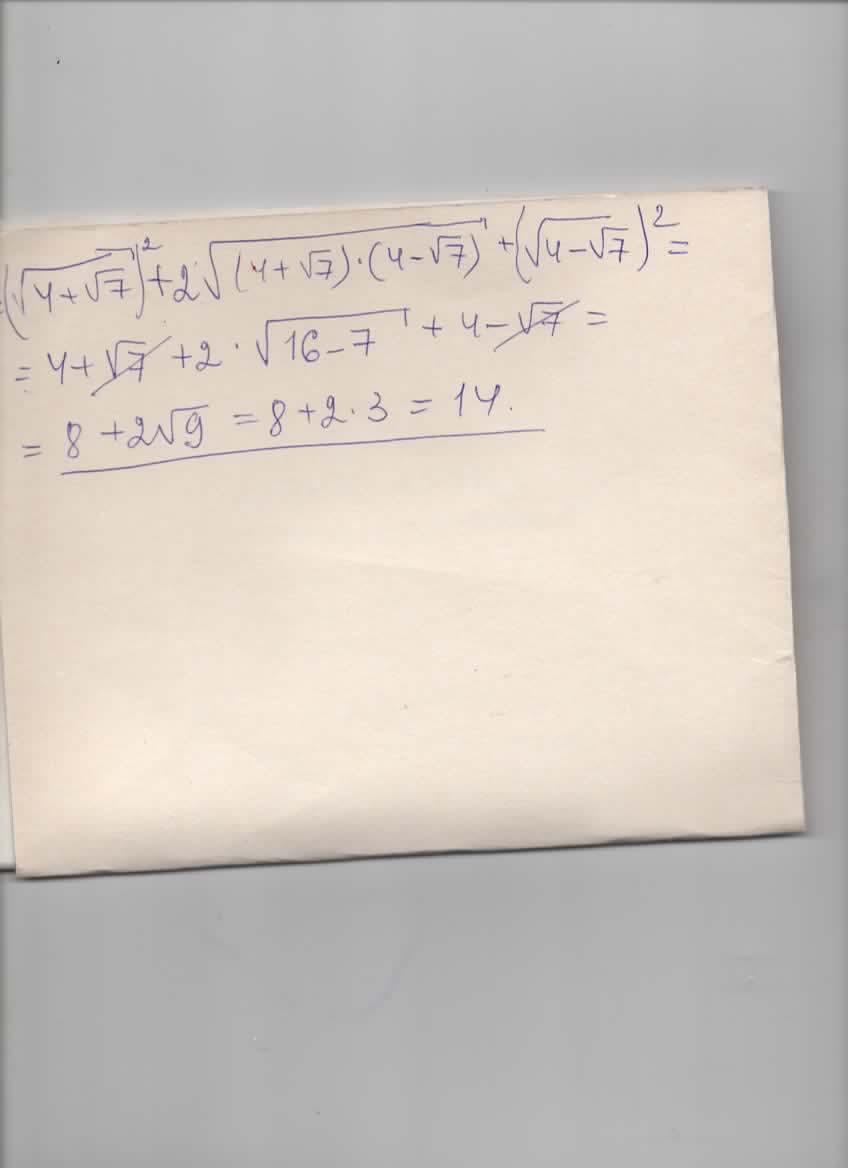 (√(4+√7))² + 2√((4+√7)·(4−√7)) + (√(4−√7))² =
= 4+√7 + 2·√(16−7) + 4−√7 =
= 8 + 2√9 = 8+2·3 = 14.